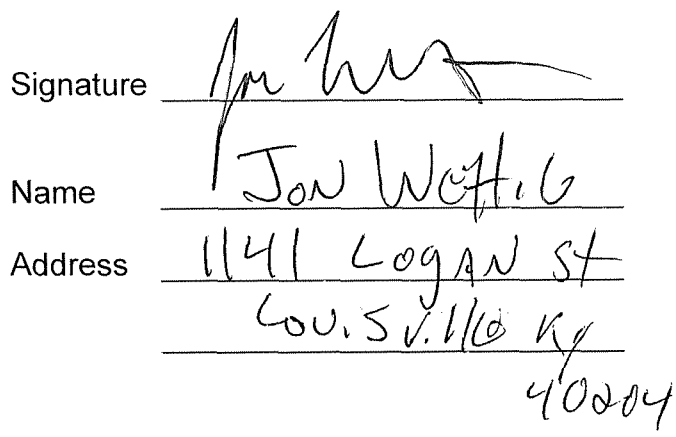 Signature
Name Jon Wettig
Address 1141 Logan St
Louisville Ky
40204